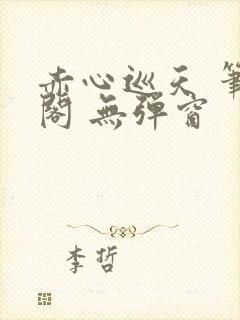 赤心巡天 筆
閣 無彈窗
李哲